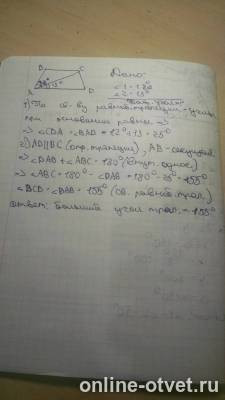 B C Дано:
12° 13° <1 = 12°
A D <2 = 13°
1) По св-ву равноб. трапеции - углы
при основании равны =>
=> <CDA = <BAD = 12°+13 = 25°
2) AD||BC (опр. трапеции), AB - секущая
=> <DAB + <ABC = 180° (внут. однос.)
=> <ABC = 180° - <DAB = 180° - 25° = 155°
<BCD = <ABC = 155° (св. равноб. трап.)
Ответ: больший угол трап. = 155°
online-otvet.ru